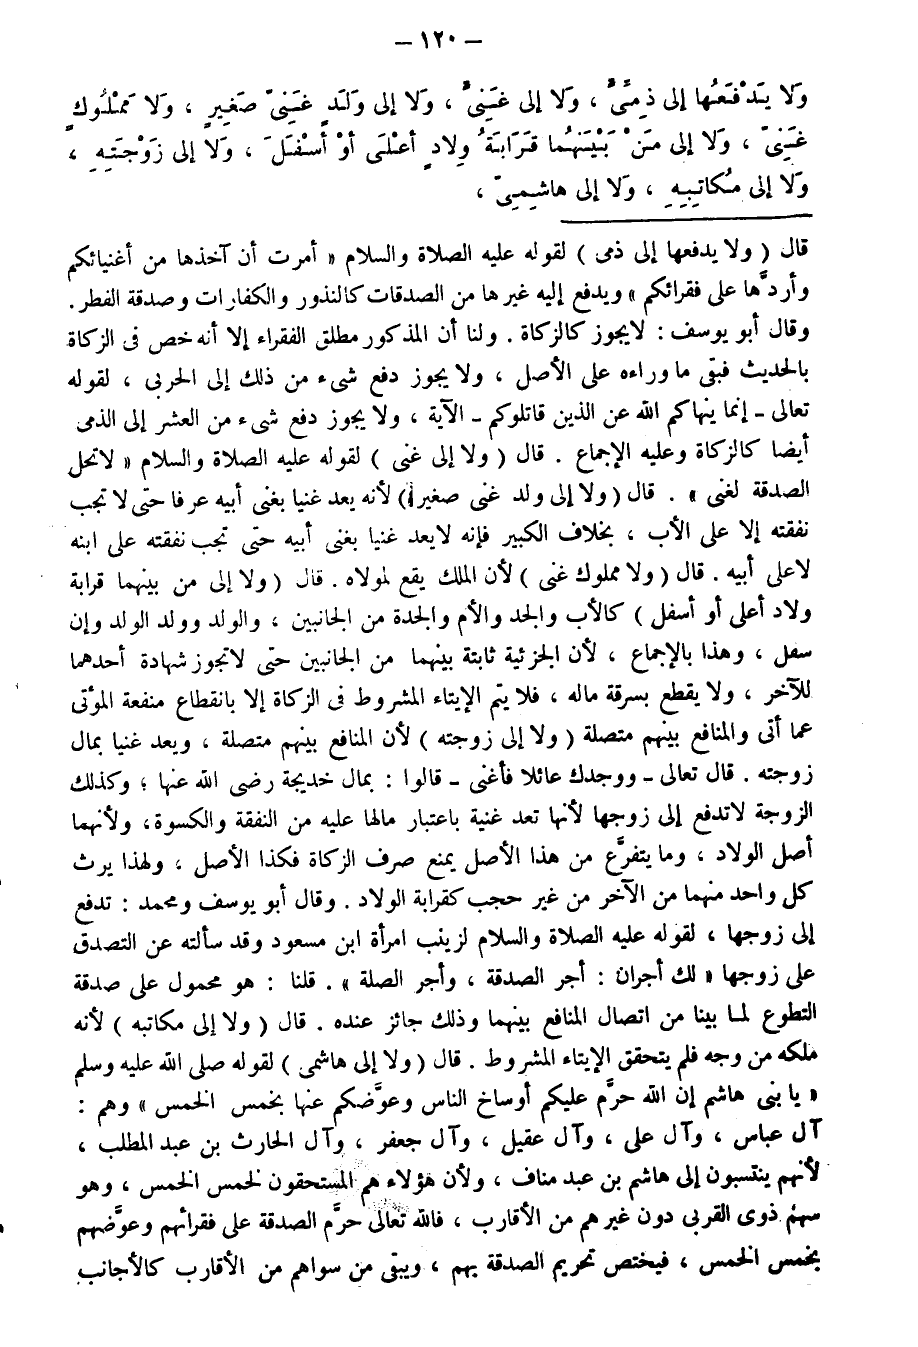 – ١٢٠ –
وَلا يَدْفَعُها إلى ذِمِّىٍّ ، وَلا إلى غَنِىٍّ ، وَلا إلى وَلَدِ غَنِىّ صَغِيرٍ ، وَلا مَمْلُوكِ
غَنِىّ ، وَلا إلى مَنْ بَيْنَهُما قَرَابَةُ وِلادٍ أعْلَى أوْ أسْفَلَ ، وَلا إلى زَوْجَتِهِ ،
وَلا إلى مُكاتِبِهِ ، وَلا إلى هاشِمِىّ ،
قال ( ولا يدفعها إلى ذمى ) لقوله عليه الصلاة والسلام « أمرت أن آخذها من أغنيائكم
وأردّها على فقرائكم » ويدفع إليه غيرها من الصدقات كالنذور والكفارات وصدقة الفطر .
وقال أبو يوسف : لايجوز كالزكاة . ولنا أن المذكور مطلق الفقراء إلا أنه خص فى الزكاة
بالحديث فبقى ما وراءه على الأصل ، ولا يجوز دفع شىء من ذلك إلى الحربى ، لقوله
تعالى ـ إنما ينهاكم الله عن الذين قاتلوكم ـ الآية ، ولا يجوز دفع شىء من العشر إلى الذمى
أيضا كالزكاة وعليه الإجماع . قال ( ولا إلى غنى ) لقوله عليه الصلاة والسلام « لاتحل
الصدقة لغنى » . قال ( ولا إلى ولد غنى صغيرا) لأنه يعد غنيا بغنى أبيه عرفا حتى لا تجب
نفقته إلا على الأب ، بخلاف الكبير فإنه لايعد غنيا بغنى أبيه حتى تجب نفقته على ابنه
لاعلى أبيه . قال ( ولا مملوك غنى ) لأن الملك يقع لمولاه . قال ( ولا إلى من بينهما قرابة
ولاد أعلى أو أسفل ) كالأب والجد والأم والجدة من الجانبين ، والولد وولد الولد وإن
سفل ، وهذا بالإجماع ، لأن الجزئية ثابتة بينهما من الجانبين حتى لاتجوز شهادة أحدهما
للآخر ، ولا يقطع بسرقة ماله ، فلا يتم الإيتاء المشروط فى الزكاة إلا بانقطاع منفعة المؤتى
عما أتى والمنافع بينهم متصلة ( ولا إلى زوجته ) لأن المنافع بينهم متصلة ، ويعد غنيا بمال
زوجته . قال تعالى ـ ووجدك عائلا فأغنى ـ قالوا : بمال خديجة رضى الله عنها ؛ وكذلك
الزوجة لاتدفع إلى زوجها لأنها تعد غنية باعتبار مالها عليه من النفقة والكسوة، ولأنهما
أصل الولاد ، وما يتفرّع من هذا الأصل يمنع صرف الزكاة فكذا الأصل ، ولهذا يرث
كل واحد منهما من الآخر من غير حجب كقرابة الولاد . وقال أبو يوسف ومحمد : تدفع
إلى زوجها ، لقوله عليه الصلاة والسلام لزينب امرأة ابن مسعود وقد سألته عن التصدق
على زوجها « لك أجران : أجر الصدقة ، وأجر الصلة » . قلنا : هو محمول على صدقة
التطوع لما بينا من اتصال المنافع بينهما وذلك جائز عنده . قال ( ولا إلى مكاتبه ) لأنه
ملكه من وجه فلم يتحقق الإيتاء المشروط . قال ( ولا إلى هاشمى ) لقوله صلى الله عليه وسلم
« يا بنى هاشم إن الله حرّم عليكم أوساخ الناس وعوّضكم عنها بخمس الخمس » وهم :
آل عباس ، وآل على ، وآل عقيل ، وآل جعفر ، وآل الحارث بن عبد المطلب ،
لأنهم ينتسبون إلى هاشم بن عبد مناف ، ولأن هؤلاء هم المستحقون لخمس الخمس ، وهو
سهم ذوى القربى دون غيرهم من الأقارب ، فالله تعالى حرّم الصدقة على فقرائهم وعوّضهم
بخمس الخمس ، فيختص تحريم الصدقة بهم ، ويبقى من سواهم من الأقارب كالأجانب